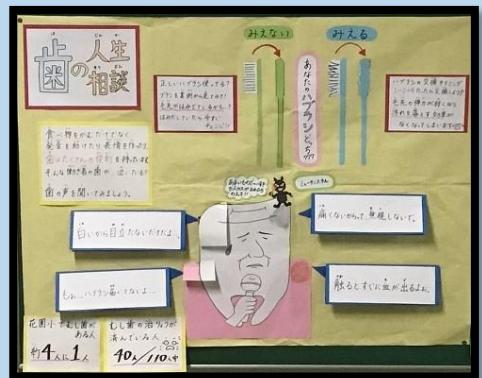 歯の人生相談
みえない
みえる
あなたのハブラシどっち??
正しいハブラシ使ってる?
ブラシを裏側から見てみて!
毛先がはみでているかも…?
はみだしていたら今すぐ
チェンジ!!
ハブラシの交換タイミング
毛先の弾力が弱くなり
汚れを落とす効果が
なくなってしまいます
食べ物をかむだけでなく
発音を助けたり表情を作ったり
歯はたくさんの役割を持ってます
そんな働き者の歯の…
歯の声を聞いてみましょう。
ミュータンスきん
白いから目立たないだけだよ…
痛くないからって無視しないで。
もぉ…ハブラシ届いてないよ…
触るとすぐに血が出るよぉ。
花園小でむし歯が
ある人
約4人に1人
むし歯の治りょうが
済んでいる人
40人/110人中